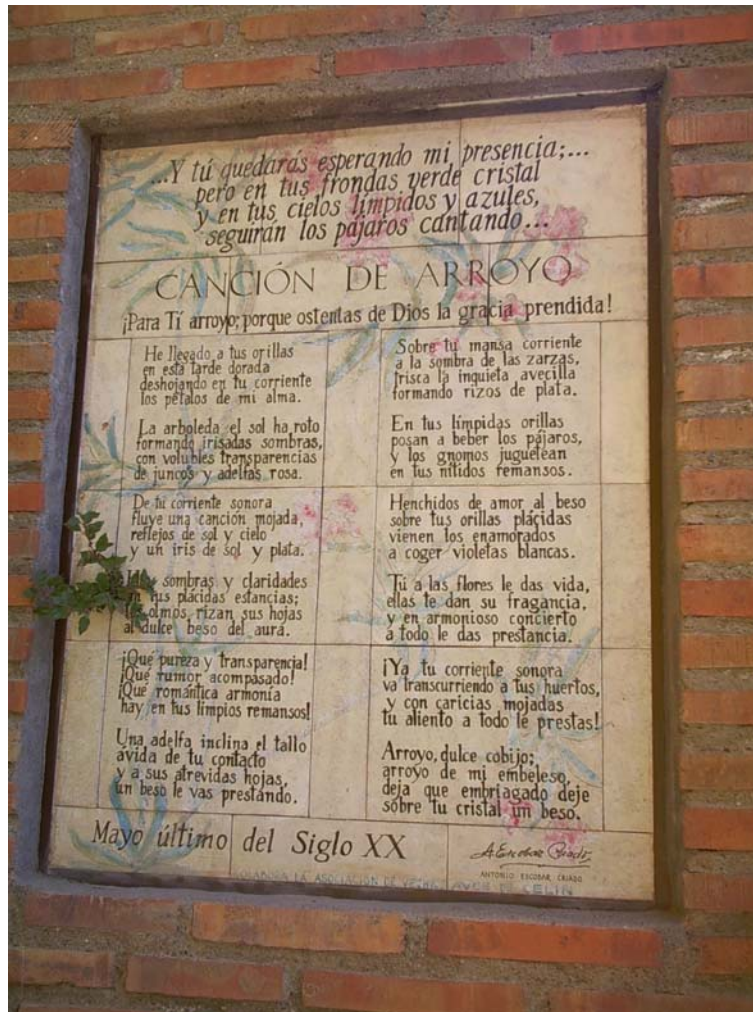 ...Y tú quedarás esperando mi presencia;...
pero en tus frondas verde cristal
y en tus cielos límpidos y azules,
seguirán los pájaros cantando...
CANCIÓN DE ARROYO
¡Para Tí arroyo; porque ostentas de Dios la gracia prendida!
He llegado a tus orillas
en esta tarde dorada
deshojando en tu corriente
los pétalos de mi alma.
La arboleda el sol ha roto
formando irisadas sombras,
con volubles transparencias
de juncos y adelfas rosa.
De tu corriente sonora
fluye una canción mojada,
reflejos de sol y cielo
y un iris de sol y plata.
sombras y claridades
tus plácidas estancias;
olmos rizan sus hojas
al dulce beso del aura.
¡Qué pureza y transparencia!
¡Qué rumor acompasado!
¡Qué romántica armonía
hay en tus limpios remansos!
Una adelfa inclina el tallo
ávida de tu contacto
y a sus atrevidas hojas,
un beso le vas prestando.
Sobre tu mansa corriente
a la sombra de las zarzas,
trisca la inquieta avecilla
formando rizos de plata.
En tus límpidas orillas
posan a beber los pájaros,
y los gnomos juguetean
en tus nítidos remansos.
Henchidos de amor al beso
sobre tus orillas plácidas
vienen los enamorados
a coger violetas blancas.
Tú a las flores le das vida,
ellas te dan su fragancia,
y en armonioso concierto
a todo le das prestancia.
¡Ya tu corriente sonora
va transcurriendo a tus huertos,
y con caricias mojadas
tu aliento a todo le prestas!
Arroyo, dulce cobijo;
arroyo de mi embeleso,
deja que embriagado deje
sobre tu cristal un beso.
Mayo último del Siglo XX
A. Escobar Criado
ANTONIO ESCOBAR CRIADO
COLABORA LA ASOCIACIÓN DE DE CELIN